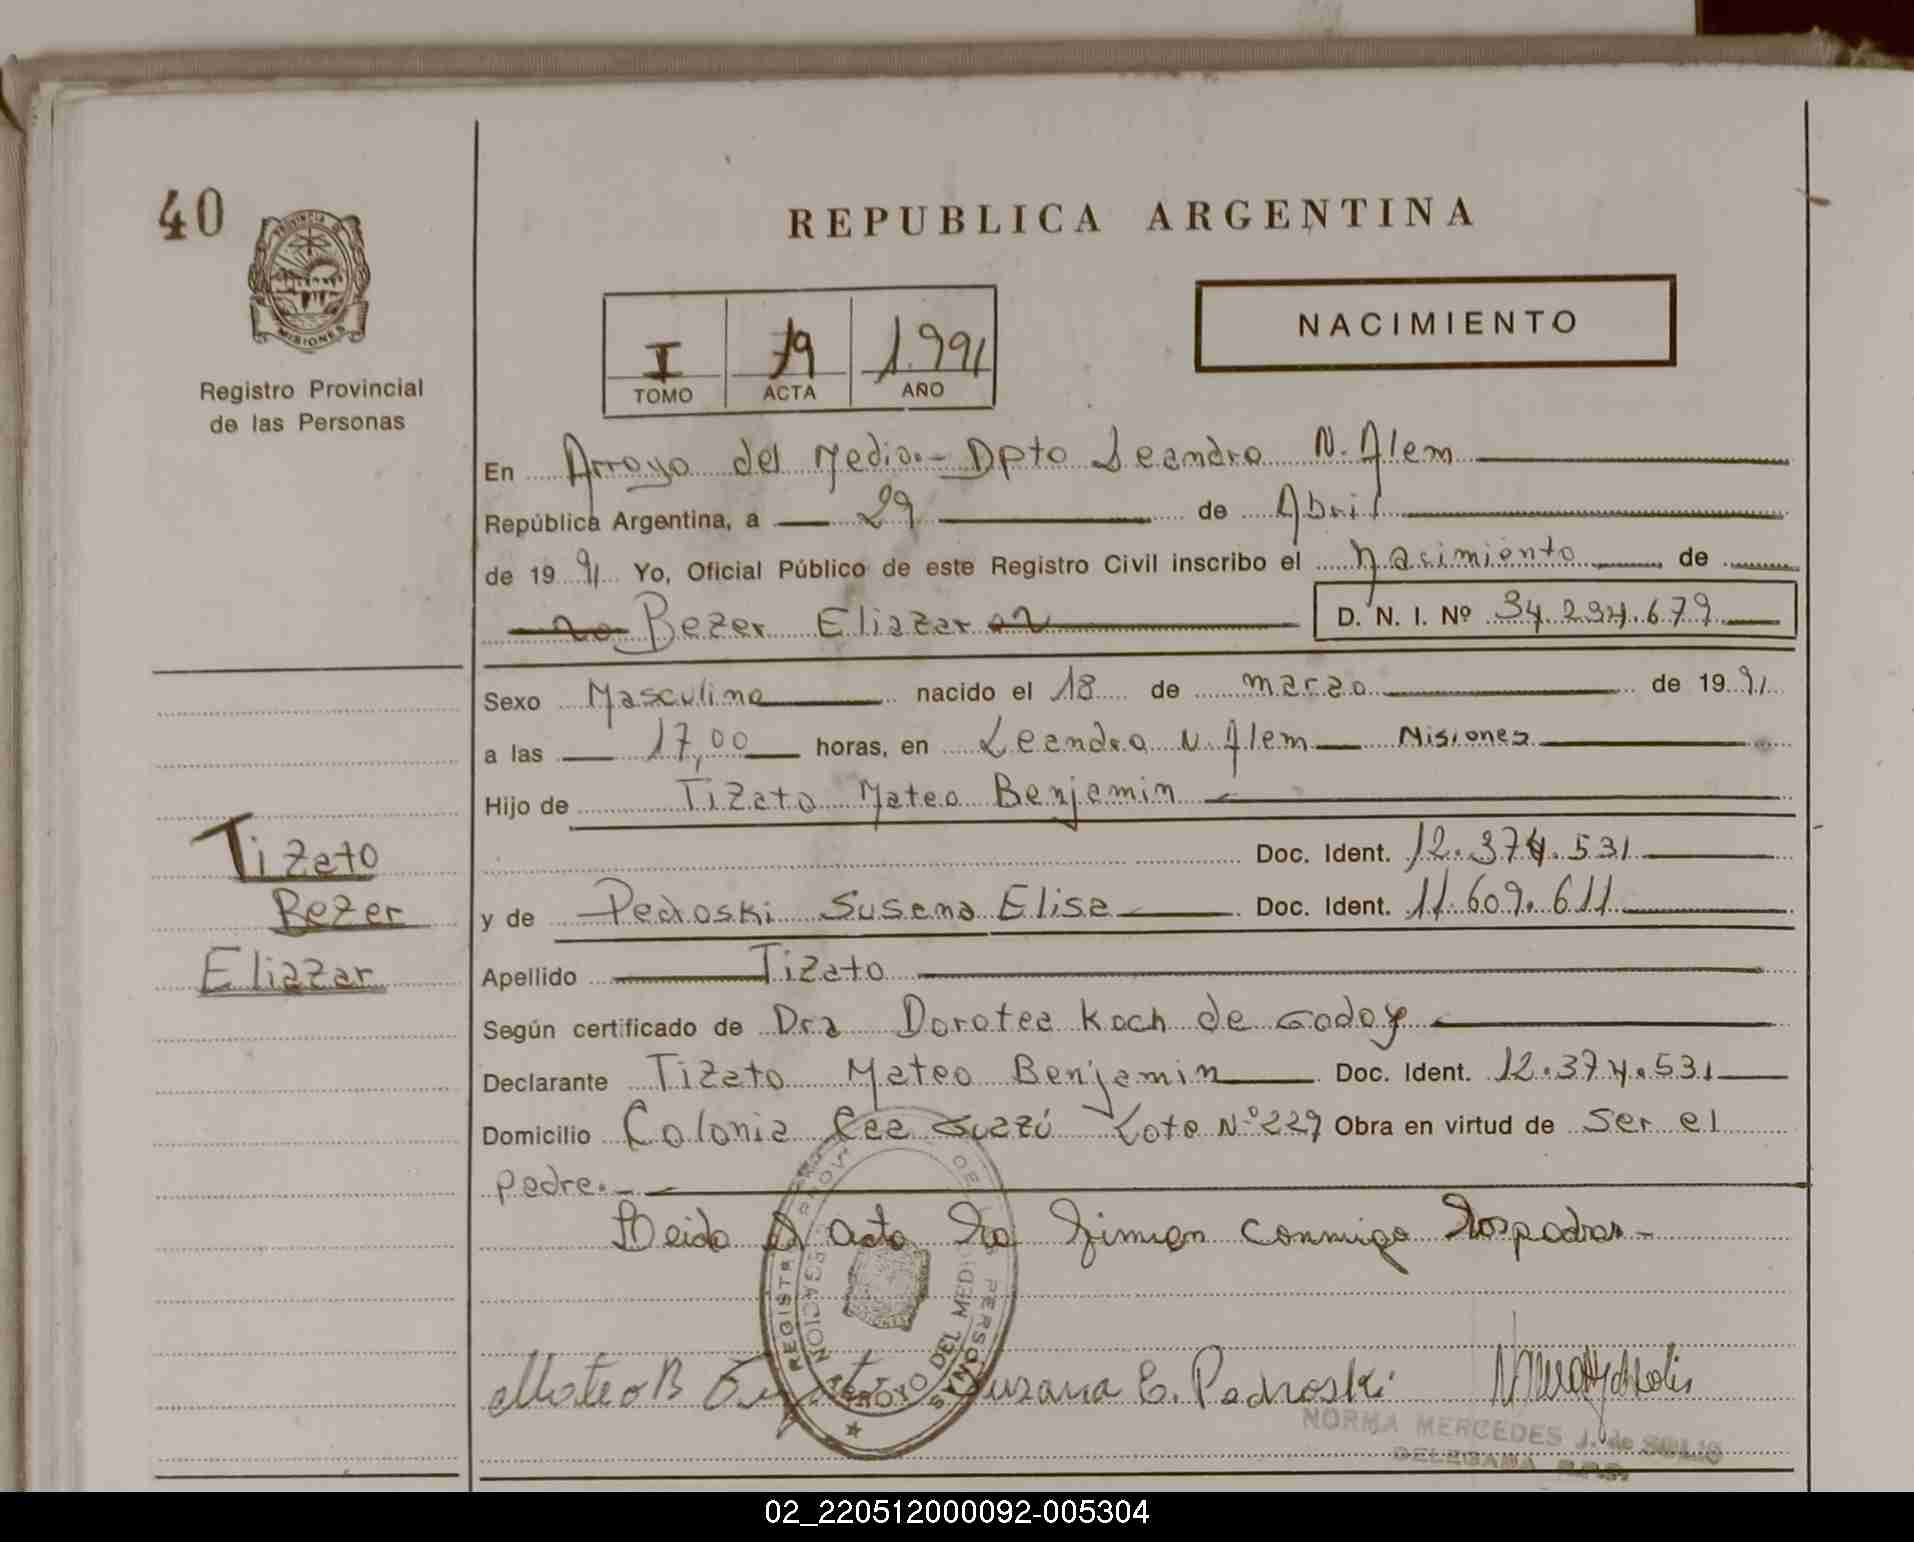 40
PROVINCIA
MISIONES
Registro Provincial
de las Personas
REPUBLICA ARGENTINA
NACIMIENTO
I 79 1.991
TOMO ACTA AÑO
En Arroyo del Medio.- Dpto Leandro N. Alem
República Argentina, a 29 de Abril
de 1991 Yo, Oficial Público de este Registro Civil inscribo el Nacimiento de
Bezer Eliazar D. N. I. Nº 34.294.679
Sexo Masculino nacido el 18 de marzo de 1991
a las 17,00 horas, en Leandro N. Alem Misiones
Hijo de Tizato Mateo Benjamin
Doc. Ident. 12.374.531
y de Pedroski Susana Elisa Doc. Ident. 11.609.611
Apellido Tizato
Según certificado de Dra Dorotea Koch de Godoy
Declarante Tizato Mateo Benjamin Doc. Ident. 12.374.531
Domicilio Colonia Caa Guazú Lote Nº 229 Obra en virtud de ser el
padre.
Leida el acta la firman conmigo los padres-
Tizato
Bezer
Eliazar
ARROYO DEL MEDIO
Mateo B Suzana E. Pedroski
NORMA MERCEDES J. de
DELEGADA R.P.P.
02_220512000092-005304